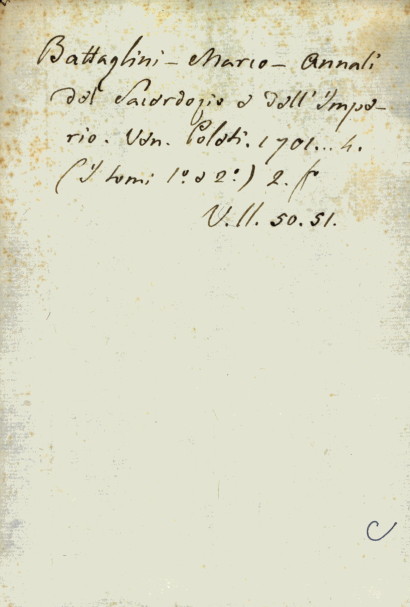 Battaglini - Marco - Annali
del Sacerdozio e dell'Impe-
rio. Ven. Poleti. 1701... 4.
(I tomi 1º e 2º) 2. fº
V. II. 50. 51.
C